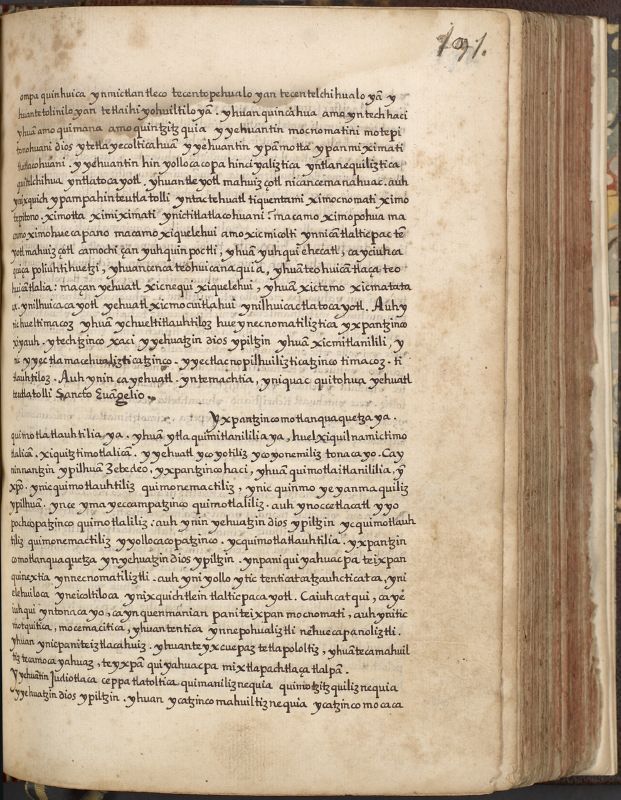 191.
ompa quinhuica ynmictlantleco tecentopehualo yan tecentelchihualo yā y
huantetolinilo yan tetlaihiyohuiltilo yā. yhuan quincahua amo yntechhaci
yhuā amo quimana amo quintzitzquia yyehuantin mocnomatini motepi
tonohuani dios ytetlayecolticahuā yyehuantin ypāmotta ypanmiximati
tlatlacohuani. yyehuantin hin yollocacopa hinciyaliztica yntlanequiliztica
quitelchihua yntlatocayotl. yhuan tleyotl mahuiçotl nican cemanahuac. auh
yeixquich ypampahin teutlatolli yntactehuatl tiquentami ximocnomati ximo
tepitono. ximotta ximiximati ynictitlatlacohuani: macamo ximopohua ma
camo ximohuecapano macamo xiquelehui amo xicmicolti ynnicātlalticpac te
yotl mahuiçotl camochi çan yuhquin poctli, yhuā yuhqui ehecatl, ca yciuhca
çaniça poliuhtihuetzi, yhuan cenca teohuicanaquia, yhuā teohuicā tlaça teo
huicā tlalia: maçan yehuatl xicnequi xiquelehui, yhuā xictemo xicmatata
ca. ynilhuicacayotl yehuatl xicmocuitlahui ynilhuicac tlatocayotl. Auh y
tichueltimacoz yhuā ychueltitlauhtiloz hueynecnomatiliztica yxpantzinco
xiyauh. ytechtzinco xaci yyehuatzin dios ypiltzin yhuā xicmitlanilili, y
ni yyectlamacehualizticatzinco. yyectlacnopilhuilizticatzinco timacoz. ti
tlauhtiloz. Auh ynin ca yehuatl. yntemachtia, yniquac quitohua yehuatl
teutlatolli Sancto Euāgelio.
yxpantzinco motlanquaquetza ya.
quimotlatlauhtilia ya. yhuā ytla quimitlanililia ya, huel xiquilnamictimo
tlalicā. xiquitztimotlalicā. yyehuatl ycoyotiliz ycoyonemiliz tonacayo. Cay
ninnantzin ypilhuā Zebedeo. yxpantzinco haci, yhuā quimotlaitlanililia. ȳ
xp̄o. ynic quimotlauhtiliz quimonemactiliz, ynic quinmoyeyanmaquiliz
ypilhuā. ynce ymayeccampatzinco quimotlaliliz. auh ynoccetlacatl yyo
pochcopatzinco quimotlaliliz: auh ynin yehuatzin dios ypiltzin ycquimotlauh
tiliz quimonemactiliz yyollocacopatzinco. ycquimotlatlauhtilia. yxpantzin
comotlanquaquetza ynyehuatzin dios ypiltzin. ynpani quiyahuacpa teixpan
quinextia ynnecnomatiliztli. auh yni yollo ytic tenticatcatzauhcticatca, yni
elehuiloca yneicoltiloca ynixquich tlein tlalticpacayotl. Caiuhcatqui, ca yē
iuhqui yntonacayo, ca ynquenmanian pani teixpan mocnomati, auh ynitic
motquitica, mocemacitica, yhuan tentica ynnepohualiztli nehuecapanoliztli.
yhuan ynicpani teiztlacahuiz. yhuan teyxcuepaz tetlapololtiz, yhuā tecamahuil
tiz tecamocayahuaz, teyxpā quiyahuacpa mixtlapachtlaça tlalpā.
Yyehuātin Judiotlaca ceppa tlatoltica quimaniliznequia quimotzitzquiliznequia
yyehuatzin dios ypiltzin. yhuan ycatzinco mahuiltiznequia ycatzinco mocaca